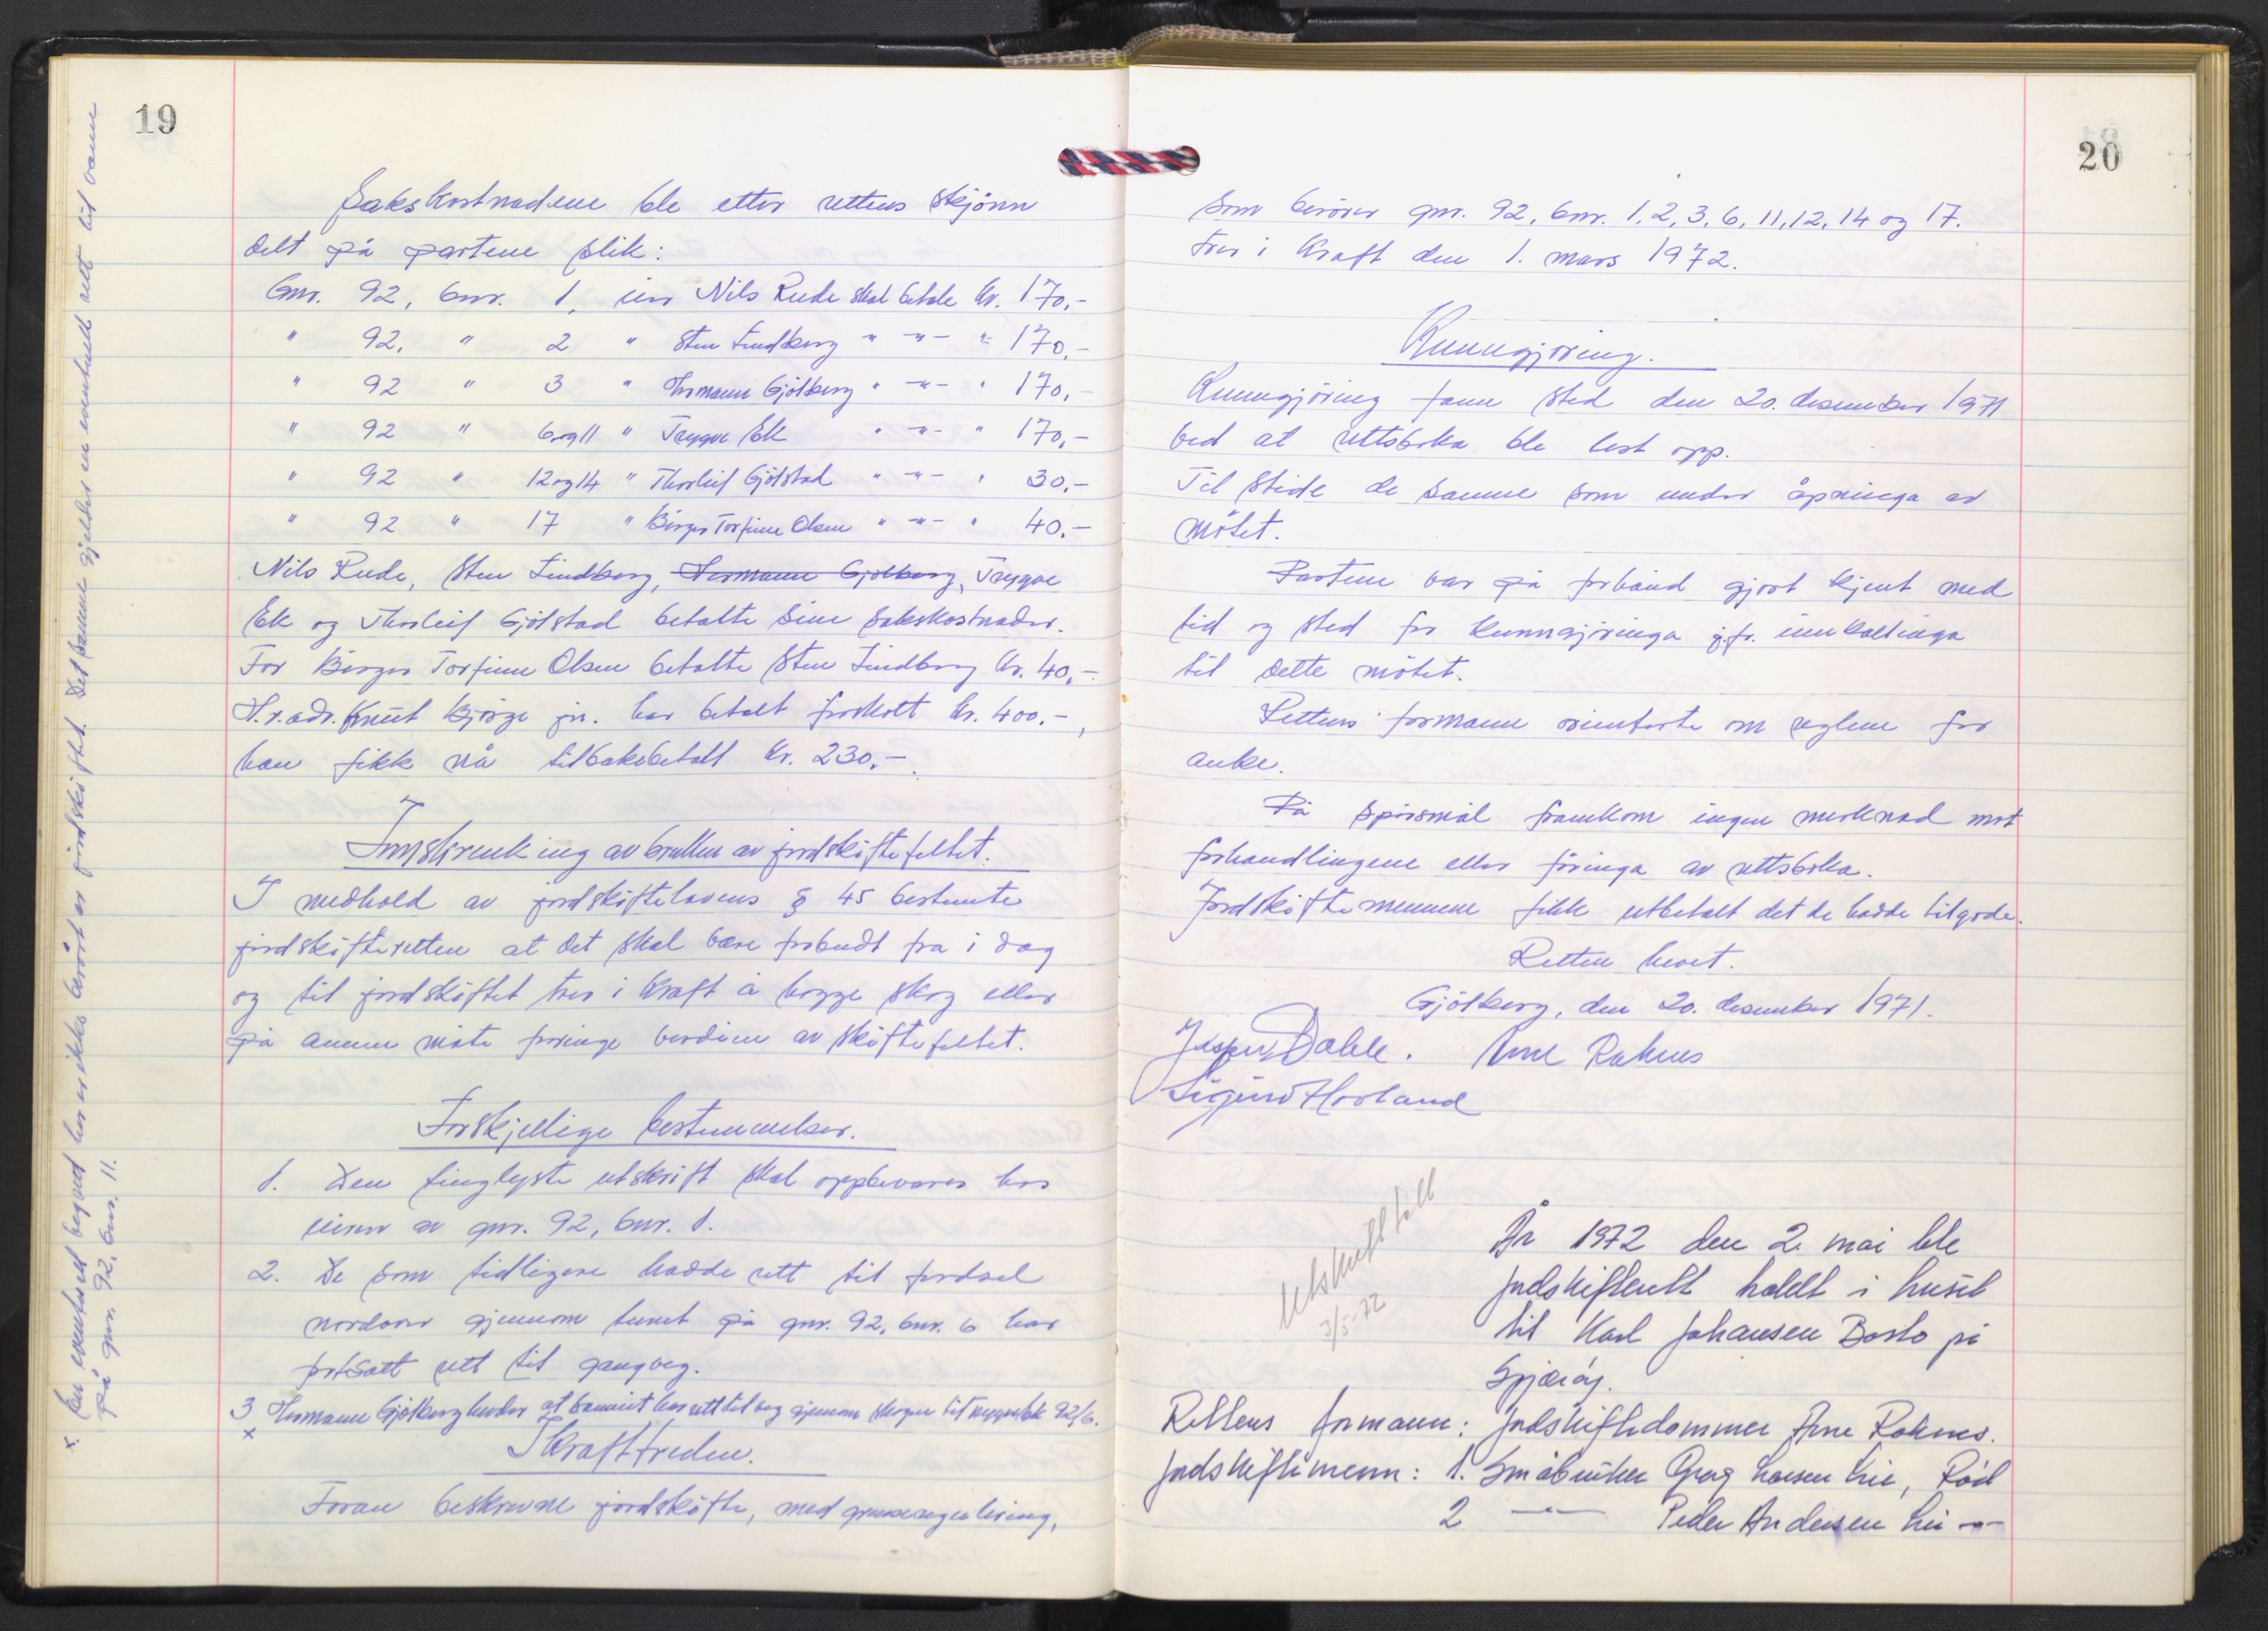 19
Sakskostnadene ble etter rettens skjönn
delt på partene slik:
Gnr. 92, bnr. 1, eier Nils Rude skal betale kr. 170,-
" 92, " 2 " Sten Lindberg " -"- " 170,-
" 92 " 3 " Hermann Gjölberg " -"- " 170,-
" 92 " 6 og 11 " Trygve Ek " -"- " 170,-
" 92 " 12 og 14 " Thorleif Gjölstad " -"- " 30,-
" 92 " 17 " Birger Torfinn Olsen " -"- " 40,-
Nils Rude, Sten Lindberg, Hermann Gjölberg, Trygve
Ek og Thorleif Gjölstad betalte sine sakskostnader.
For Birger Torfinn Olsen betalte Sten Lindberg kr. 40,-.
H.r.adv. Knut Kjörge jr. har betalt forskott kr. 400.-,
han fikk nå tilbakebetalt kr. 230.-.
Innskrenking av bruken av jordskiftefeltet.
I medhold av jordskiftelovens § 45 bestemte
jordskifteretten at det skal være forbudt fra i dag
og til jordskiftet trer i kraft å hogge skog eller
på annen måte forringe verdien av skiftefeltet.
Forskjellige bestemmelser.
1. Den tinglyste utskrift skal oppbevares hos
eieren av gnr. 92, bnr. 1.
2. De som tidligere hadde rett til ferdsel
nordover gjennom tunet på gnr. 92, bnr. 6 har
fortsatt rett til gangveg.
3 Hermann Gjölberg hevder at han har rett til veg gjennom skogen til 92/6.
x
Ikrafttreden.
Foran beskrevne jordskifte, med grenseregulering,
x. En eventuell begjæret her er ikke berört av jordskiftet. Det samme gjelder en eventuell rett til vann
på gnr. 92, bnr. 11.
20
som berörer gnr. 92, bnr. 1, 2, 3, 6, 11, 12, 14 og 17.
trer i kraft den 1. mars 1972.
Kunngjöring.
Kunngjöring fann sted den 20. desember 1971
ved at rettsboka ble lest opp.
Til stede de samme som under åpninga av
mötet.
Partene var på forhånd gjort kjent med
tid og sted for kunngjöringa jfr. innkallinga
til dette mötet.
Rettens formann orienterte om reglene for
anke.
På spörsmål framkom ingen merknad mot
forhandlingene eller föringa av rettsboka.
Jordskiftemennene fikk utbetalt det de hadde tilgode.
Retten hevet.
Gjölberg, den 20. desember 1971.
Jesper Dahle. Arne Raknes
Sigurd Hovland
Utskrift tatt
3/5-72
År 1972 den 2. mai ble
jordskifterett holdt i huset
til Karl Johansen Basto på
Spjæröy.
Rettens formann: jordskiftedommer Arne Raknes.
Jordskiftemenn: 1. Småbruker Georg Larsen Lie, Röd
2 -"- Peder Andersen Lie -"-